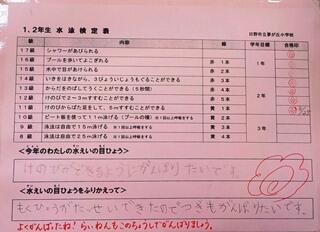 1、2年生 水泳検定表
日野市立夢が丘小学校
級 内容 線 学年目標 合格印
17級 シャワーがあびられる
16級 プールを歩いてよこぎれる 赤 1本 1年
15級 水中で目があけられる 赤 2本
14級 いきをながきながら、3びょういじょうもぐることができる 赤 3本
13級 からだをのばしてうくことができる(5秒間) 赤 4本
12級 けのびで2〜3mすすむことができる 赤 5本 2年
11級 けのびからばた足をして、5mすすむことができる 黄 1本
10級 ビート板を使って11m泳げる(プールの横) ※1回以上呼吸をする 黄 2本
9級 泳法は自由で5m泳げる ※1回以上呼吸をする 黄 3本 3年
8級 泳法は自由で15m泳げる 黄 4本
<今年のわたしの水えいの目ひょう>
けのびができるようにがんばりたいです。
<水えいの目ひょうをふりかえって>
もくひょうがたっせいできたのでつぎもがんばりたいです。
よくがんばったね!らいねんもこのちょうしでがんばりましょう。